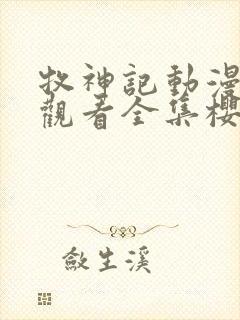 牧神記動漫
觀看全集櫻
斂生溪